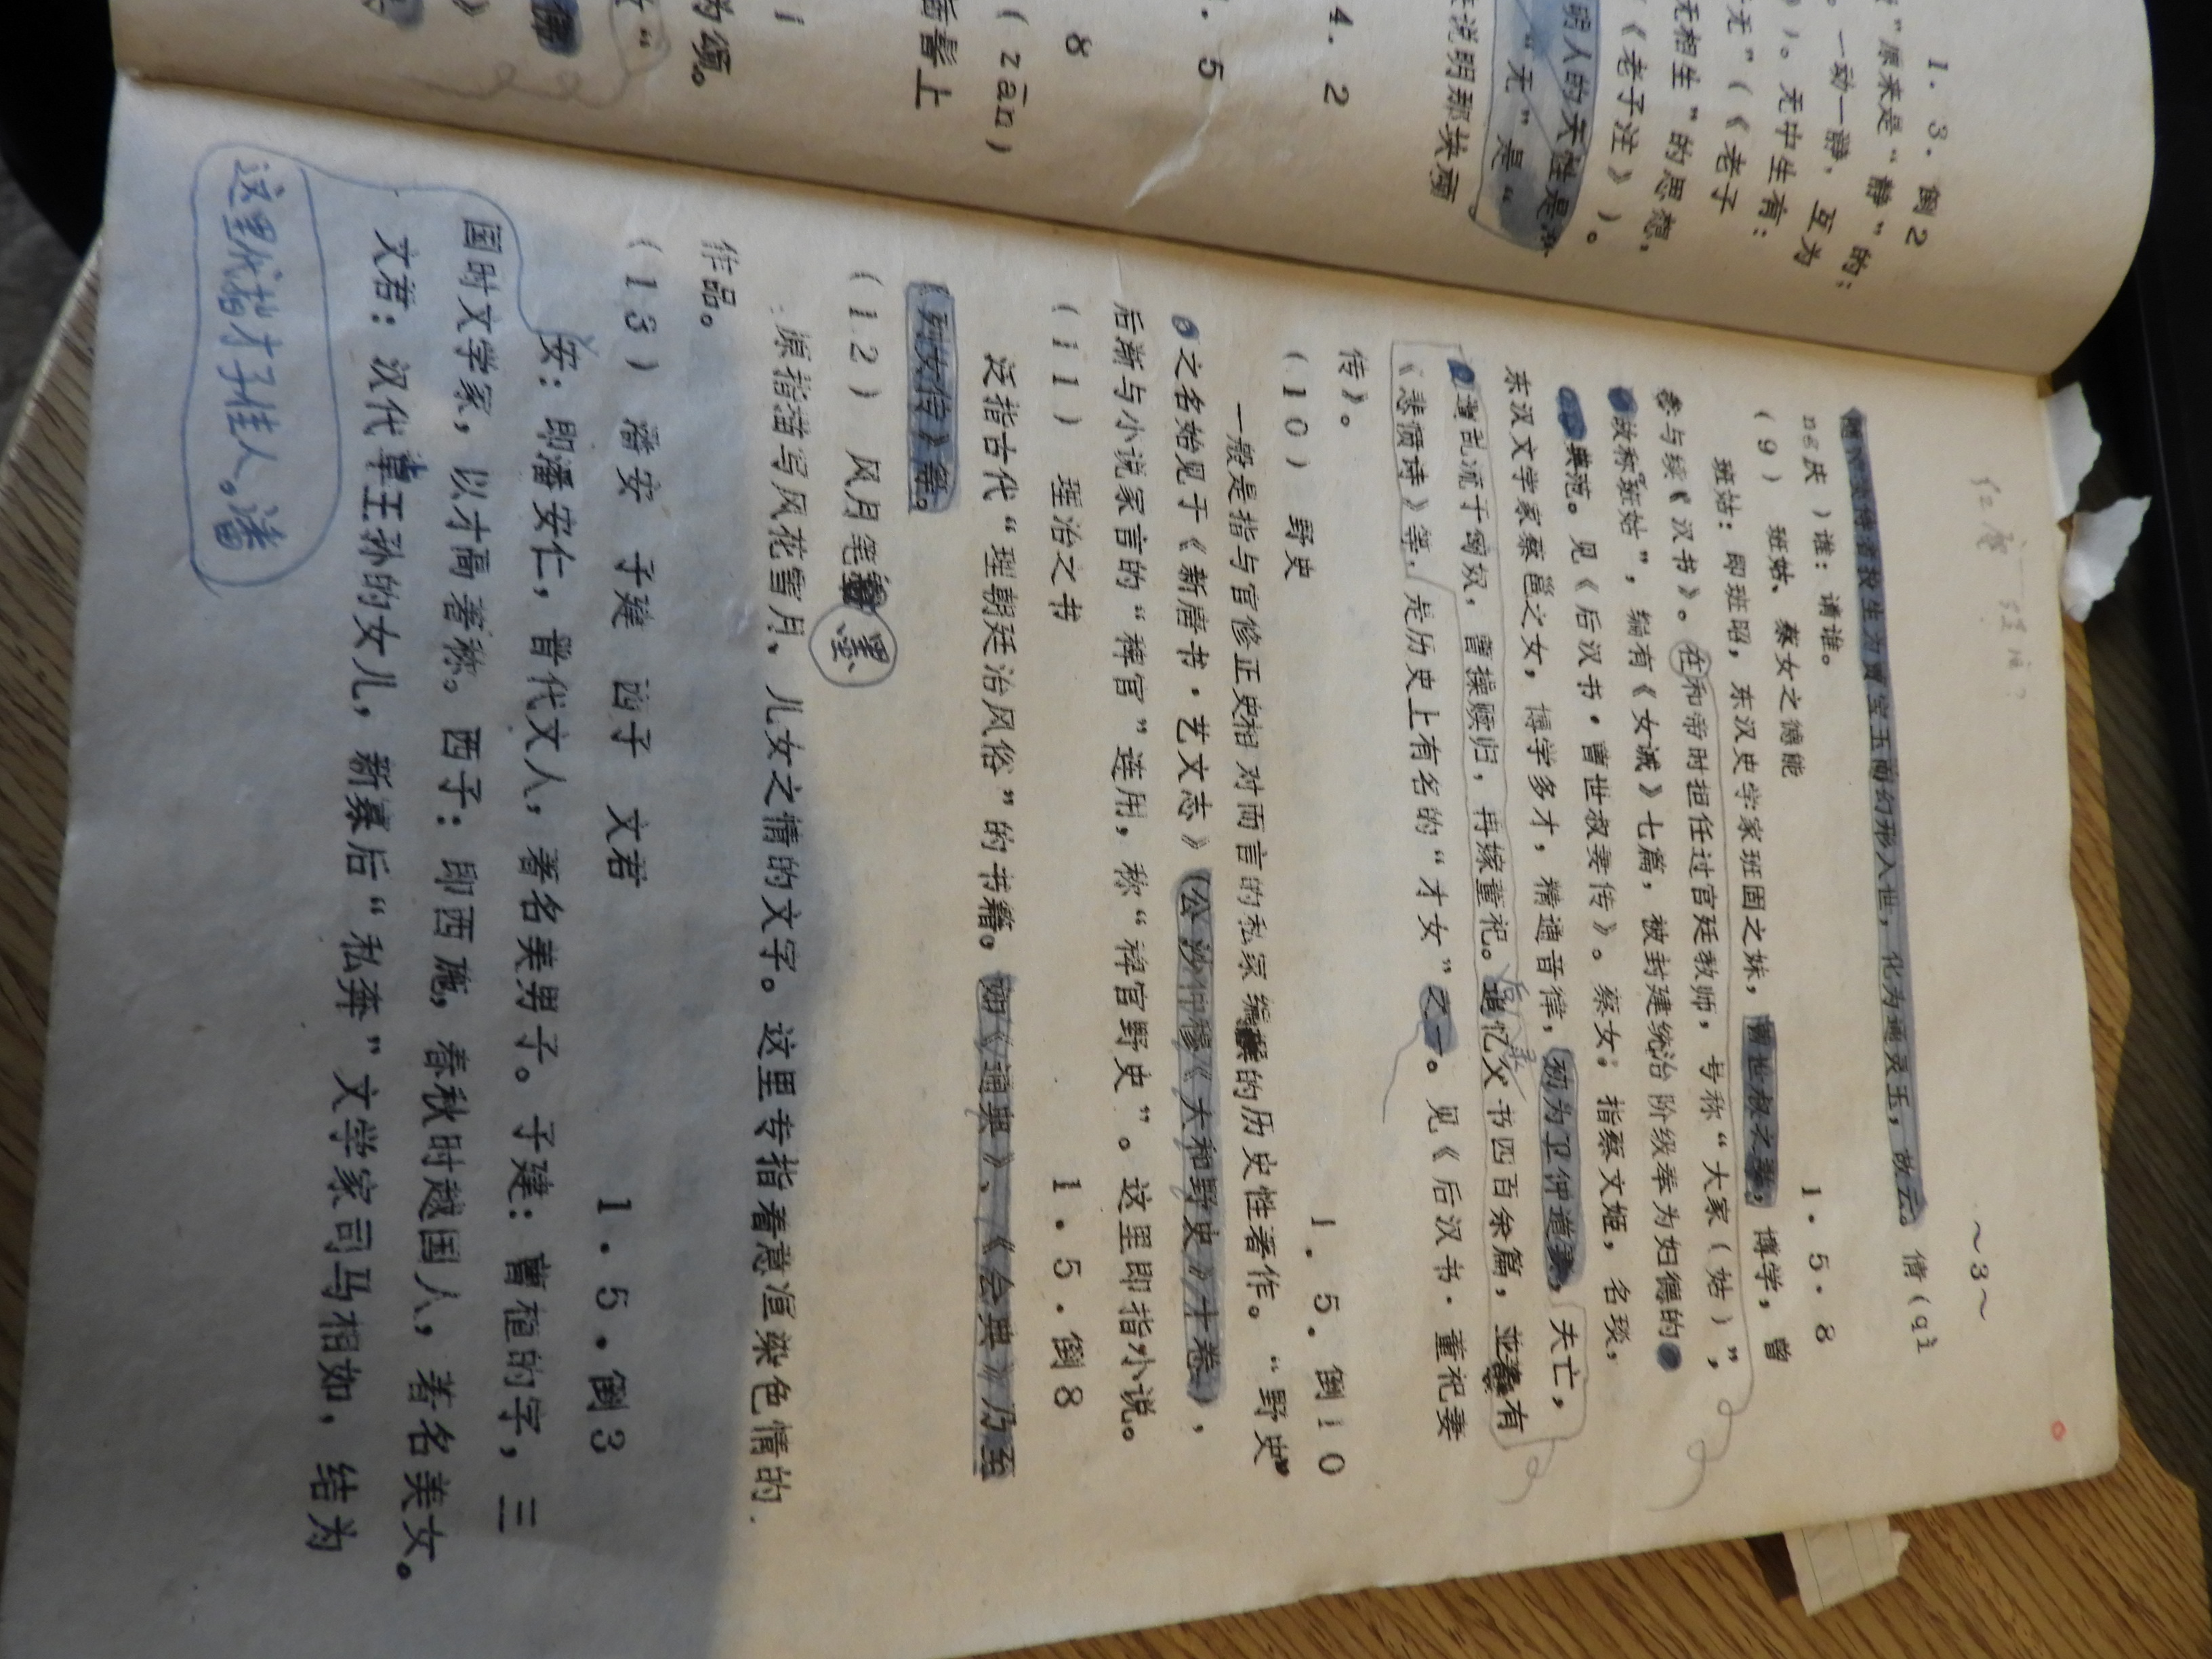 ～3～
随神瑛侍者投生为贾宝玉而幻形入世，化为通灵玉，故云。倩（qì
ne庆）谁：请谁。
（9） 班姑、蔡女之德能 1．5．8
班姑：即班昭，东汉史学家班固之妹，曹世叔之妻，博学，曾
参与续《汉书》。在和帝时担任过宫廷教师，号称“大家（姑）”，
故称“班姑”，编有《女诫》七篇，被封建统治阶级奉为妇德的
典范。见《后汉书·曹世叔妻传》。蔡女：指蔡文姬，名琰，
东汉文学家蔡邕之女，博学多才，精通音律，初为卫仲道妻，夫亡，
遭乱流于匈奴，曹操赎归，再嫁董祀。追忆父书四百余篇，并有
《悲愤诗》等，是历史上有名的“才女”之一。见《后汉书·董祀妻
传》。
（10） 野史 1．5．倒10
一般是指与官修正史相对而言的私家编的历史性著作。“野史”
之名始见于《新唐书·艺文志》（公沙仲穆《大和野史》十卷），
后渐与小说家言的“稗官”连用，称“稗官野史”。这里即指小说。
（11） 理治之书 1．5．倒8
泛指古代“理朝廷治风俗”的书籍。如《通典》、《会典》乃至
《列女传》等。
（12） 风月笔墨
原指描写风花雪月、儿女之情的文字。这里专指着意渲染色情的
作品。
（13） 潘安 子建 西子 文君 1．5．倒3
这里代指才子佳人。潘
安：即潘安仁，晋代文人，著名美男子。子建：曹植的字，三
国时文学家，以才高著称。西子：即西施，春秋时越国人，著名美女。
文君：汉代卓王孙的女儿，新寡后“私奔”文学家司马相如，结为
1．3．倒2
”原来是“静”的；
。一动一静，互为
》）。无中生有：
无”（《老子
无相生”的思想，
《老子注》）。
明人的天性是
“无”是“
来说明那块顽
4．2
．5
8
（zān）
后髻上
为颂。